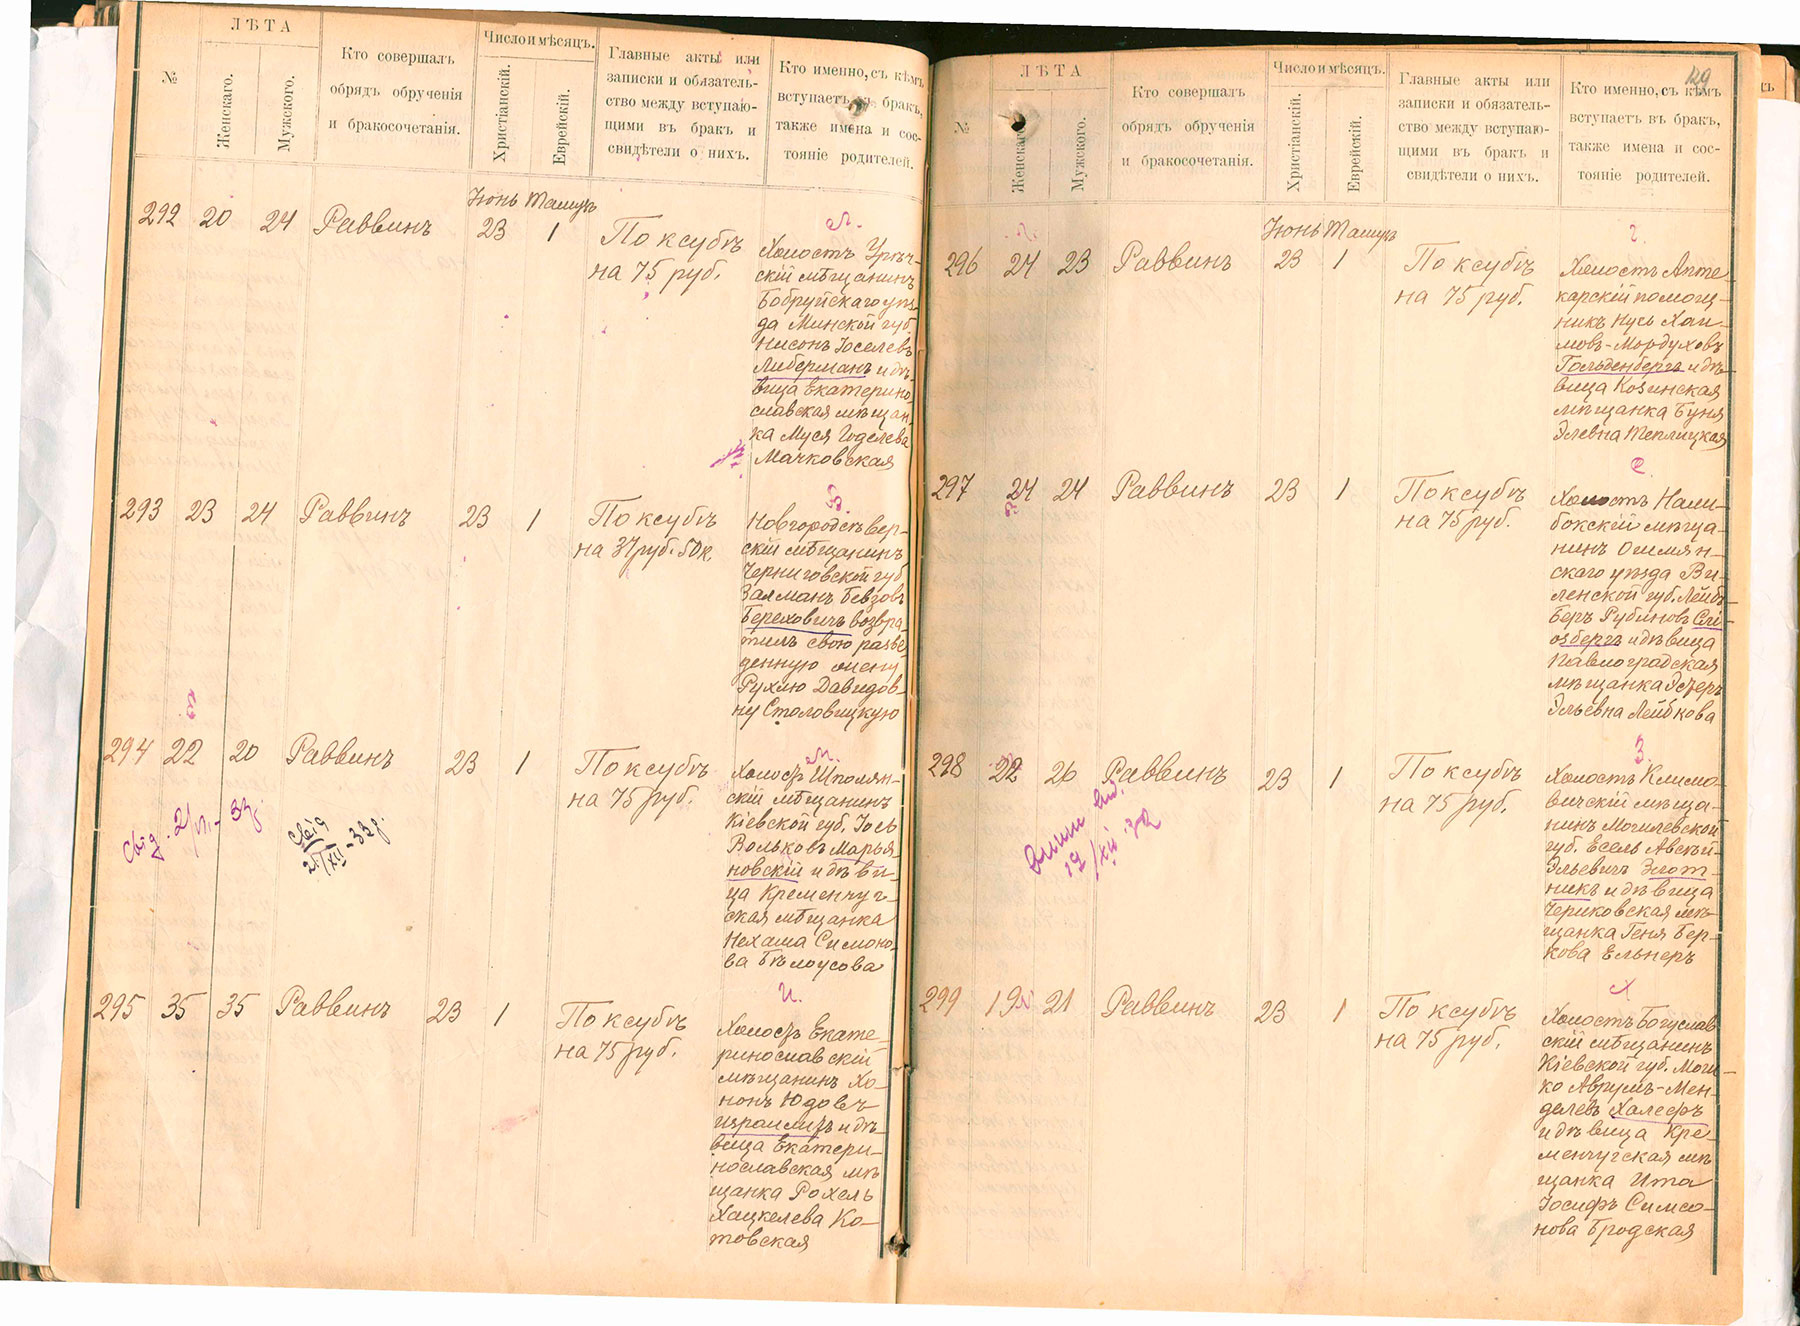 ЛѢТА
№
Женскаго.
Мужского.
Кто совершалъ
обрядъ обрученія
и бракосочетанія.
Число и мѣсяцъ.
Христіанскій.
Еврейскій.
Главные акты или
записки и обязатель-
ство между вступаю-
щими въ бракъ и
свидѣтели о нихъ.
Кто именно, съ кѣмъ
вступаетъ въ бракъ,
также имена и сос-
тояніе родителей.
Іюнь Тамузъ
292 20 24 Раввинъ 23 1
По ксубѣ
на 75 руб.
Холостъ Урѣч-
скій мѣщанинъ
Бобруйскаго уѣз-
да Минской губ.
Нисонъ Іоселевъ
Либерманъ и дѣ-
вица Екатерино-
славская мѣщан-
ка Муся Годелева
Мачковская
293 23 24 Раввинъ 23 1
По ксубѣ
на 37 руб. 50 к.
Новгородсѣвер-
скій мѣщанинъ
Черниговской губ.
Залманъ Бевзовъ
Береховичъ возвра-
тилъ свою разве-
денную жену
Рухлю Давидов-
ну Столовицкую
294 22 20 Раввинъ 23 1
По ксубѣ
на 75 руб.
Холостъ Шполян-
скій мѣщанинъ
Кіевской губ. Іось
Вольковъ Марья-
новскій и дѣви-
ца Кременчуг-
ская мѣщанка
Нехама Симоно-
ва Бѣлоусова
295 35 35 Раввинъ 23 1
По ксубѣ
на 75 руб.
Холостъ Екате-
ринославскій
мѣщанинъ Хо-
нонъ Юдовъ
Израилитъ и дѣ-
вица Екатери-
нославская мѣ-
щанка Рохель
Хацкелева Ко-
товская
129
ЛѢТА
№
Женскаго.
Мужского.
Кто совершалъ
обрядъ обрученія
и бракосочетанія.
Число и мѣсяцъ.
Христіанскій.
Еврейскій.
Главные акты или
записки и обязатель-
ство между вступаю-
щими въ бракъ и
свидѣтели о нихъ.
Кто именно, съ кѣмъ
вступаетъ въ бракъ,
также имена и сос-
тояніе родителей.
Іюнь Тамузъ
296 24 23 Раввинъ 23 1
По ксубѣ
на 75 руб.
Холостъ Апте-
карскій помощ-
никъ Нусь Хаи-
мовъ-Мордуховъ
Гольденбергъ и дѣ-
вица Козинская
мѣщанка Буня
Элевна Теплицкая
297 24 24 Раввинъ 23 1
По ксубѣ
на 75 руб.
Холостъ Нали-
бокскій мѣща-
нинъ Ошмян-
скаго уѣзда Ви-
ленской губ. Лейбъ-
Беръ Рубиновъ Слі-
озбергъ и дѣвица
Павлоградская
мѣщанка Эстеръ
Эльевна Лейбкова
298 22 26 Раввинъ 23 1
По ксубѣ
на 75 руб.
Холостъ Климо-
вичскій мѣща-
нинъ Могилевской
губ. Есель Авсѣй-
Эльевичъ Злот-
никъ и дѣвица
Чериковская мѣ-
щанка Геня Бер-
кова Ельнеръ
299 19 21 Раввинъ 23 1
По ксубѣ
на 75 руб.
Холостъ Богуслав-
скій мѣщанинъ
Кіевской губ. Мош-
ко Аврумъ-Мен-
делевъ Халефъ
и дѣвица Кре-
менчугская мѣ-
щанка Ита
Іосифъ Симсо-
нова Бродская